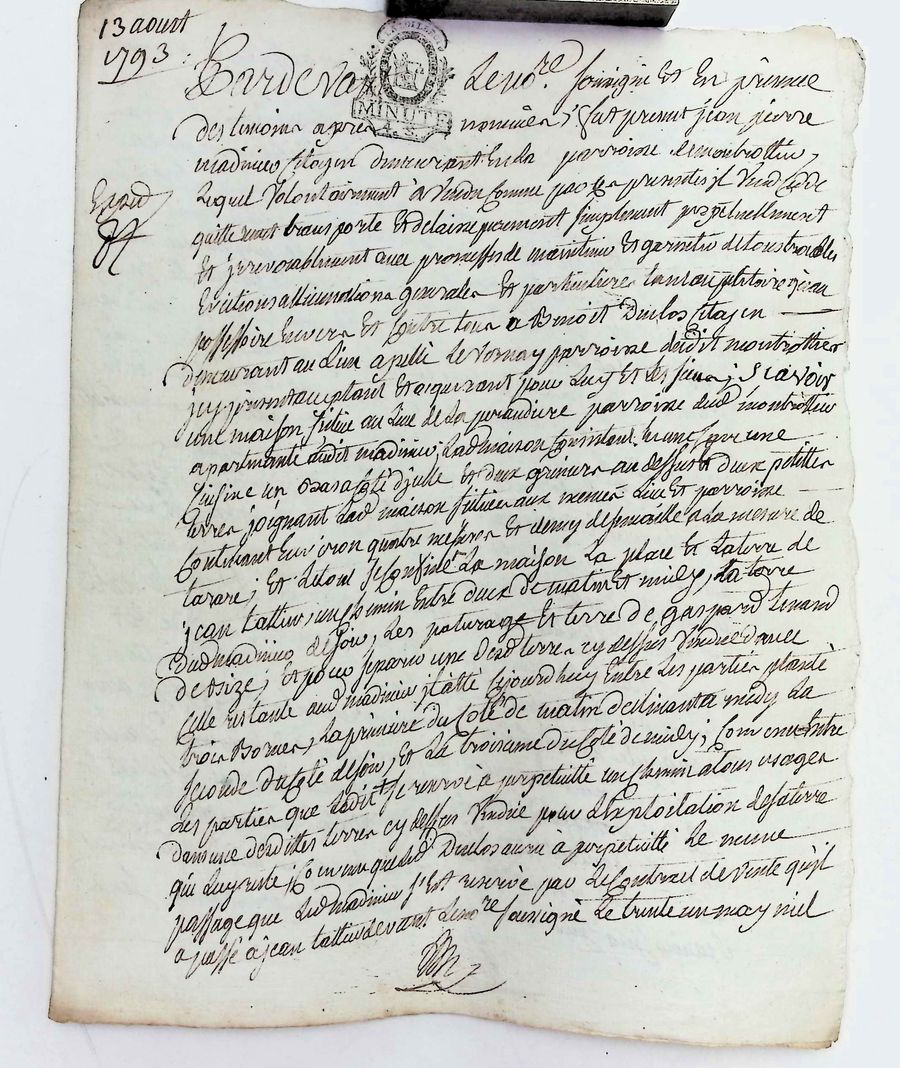 13 aoust
1793
Pardevant Le no.re soussigné Et En presence
Des temoins apres nommés, fut present jean pierre
MINUTE
madinier Citoyen demeurant En la parroisse de montrottier,
Lequel Volontairement à Vendu Comme par Ces presentes il Vend Cede
quitte remet transporte Et delaisse purement simplement perpetuellement
Et irrevocablement avec promesse de maintenir Et garentir de tous troubles
Evictions allienations generales Et particulieres tant au petitoire qu'au
possessoire Envers Et Contre tous a Benoit Duclos Citoyen
demeurant au Lieu apellé Le Vernay parroisse dudit montrottier
icy present acceptant Et acquerant pour Luy Et Les siens; sCavoir
une maison située au Lieu de La parroisse dud. montrottier
apartenante audit madinier, Lad. maison Consistant En une
Cuisine un Bas a Coté d'jcelle Et deux greniers au dessus Et deux petittes
terres joignant Lad. maison situées aux memes Lieu Et parroisse
Contenant Environ quatre mesures Et demy de semaille a La mesure de
tarare; Et Le tout se Confine La maison La place Et La terre de
jean un chemin Entre deux de matin Et midy, La terre
Dud. madinier de soir, Les paturage Et terre de gaspard
de Bize; Et pour separer une desd. terres cy dessus Vendue d'avec
Celle restante aud. madinier il a Eté Cejourdhuy Entre Les parties planté
trois Bornes, La premiere du Coté de matin a midy La
seconde du Coté de soir, Et La troisieme du Coté de midy; Convenu Entre
Les parties que Ledit se reserve à perpetuitté un chemin a tous usages
Dans une desdittes terres cy dessus Vendue pour L'Exploitation de sa terre
qui Luy reste; Comme que Led. Duclos aura à perpetuitté Le meme
passage que Led. madinier s'Est reservé par Le Contract de Vente qu'il
a passé a jean devant Le no.re soussigné Le trente un may mil